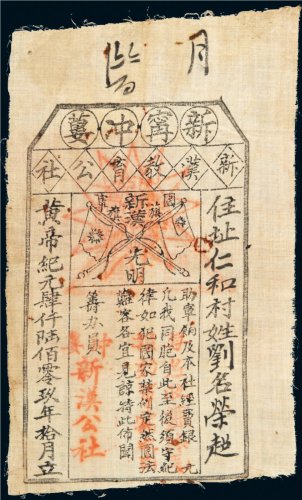 月
新寗中蔞
新漢教育公社
住址仁和村姓劉名榮
國旗
新漢
光明
助寧餉及本社經費銀 元
凡我同胞自此至後須守紀
律如犯國家禁例定然國法
難容各宜見諒特此佈聞
籌办員
新漢公社
黄帝紀元肆仟陸佰零玖年拾月立